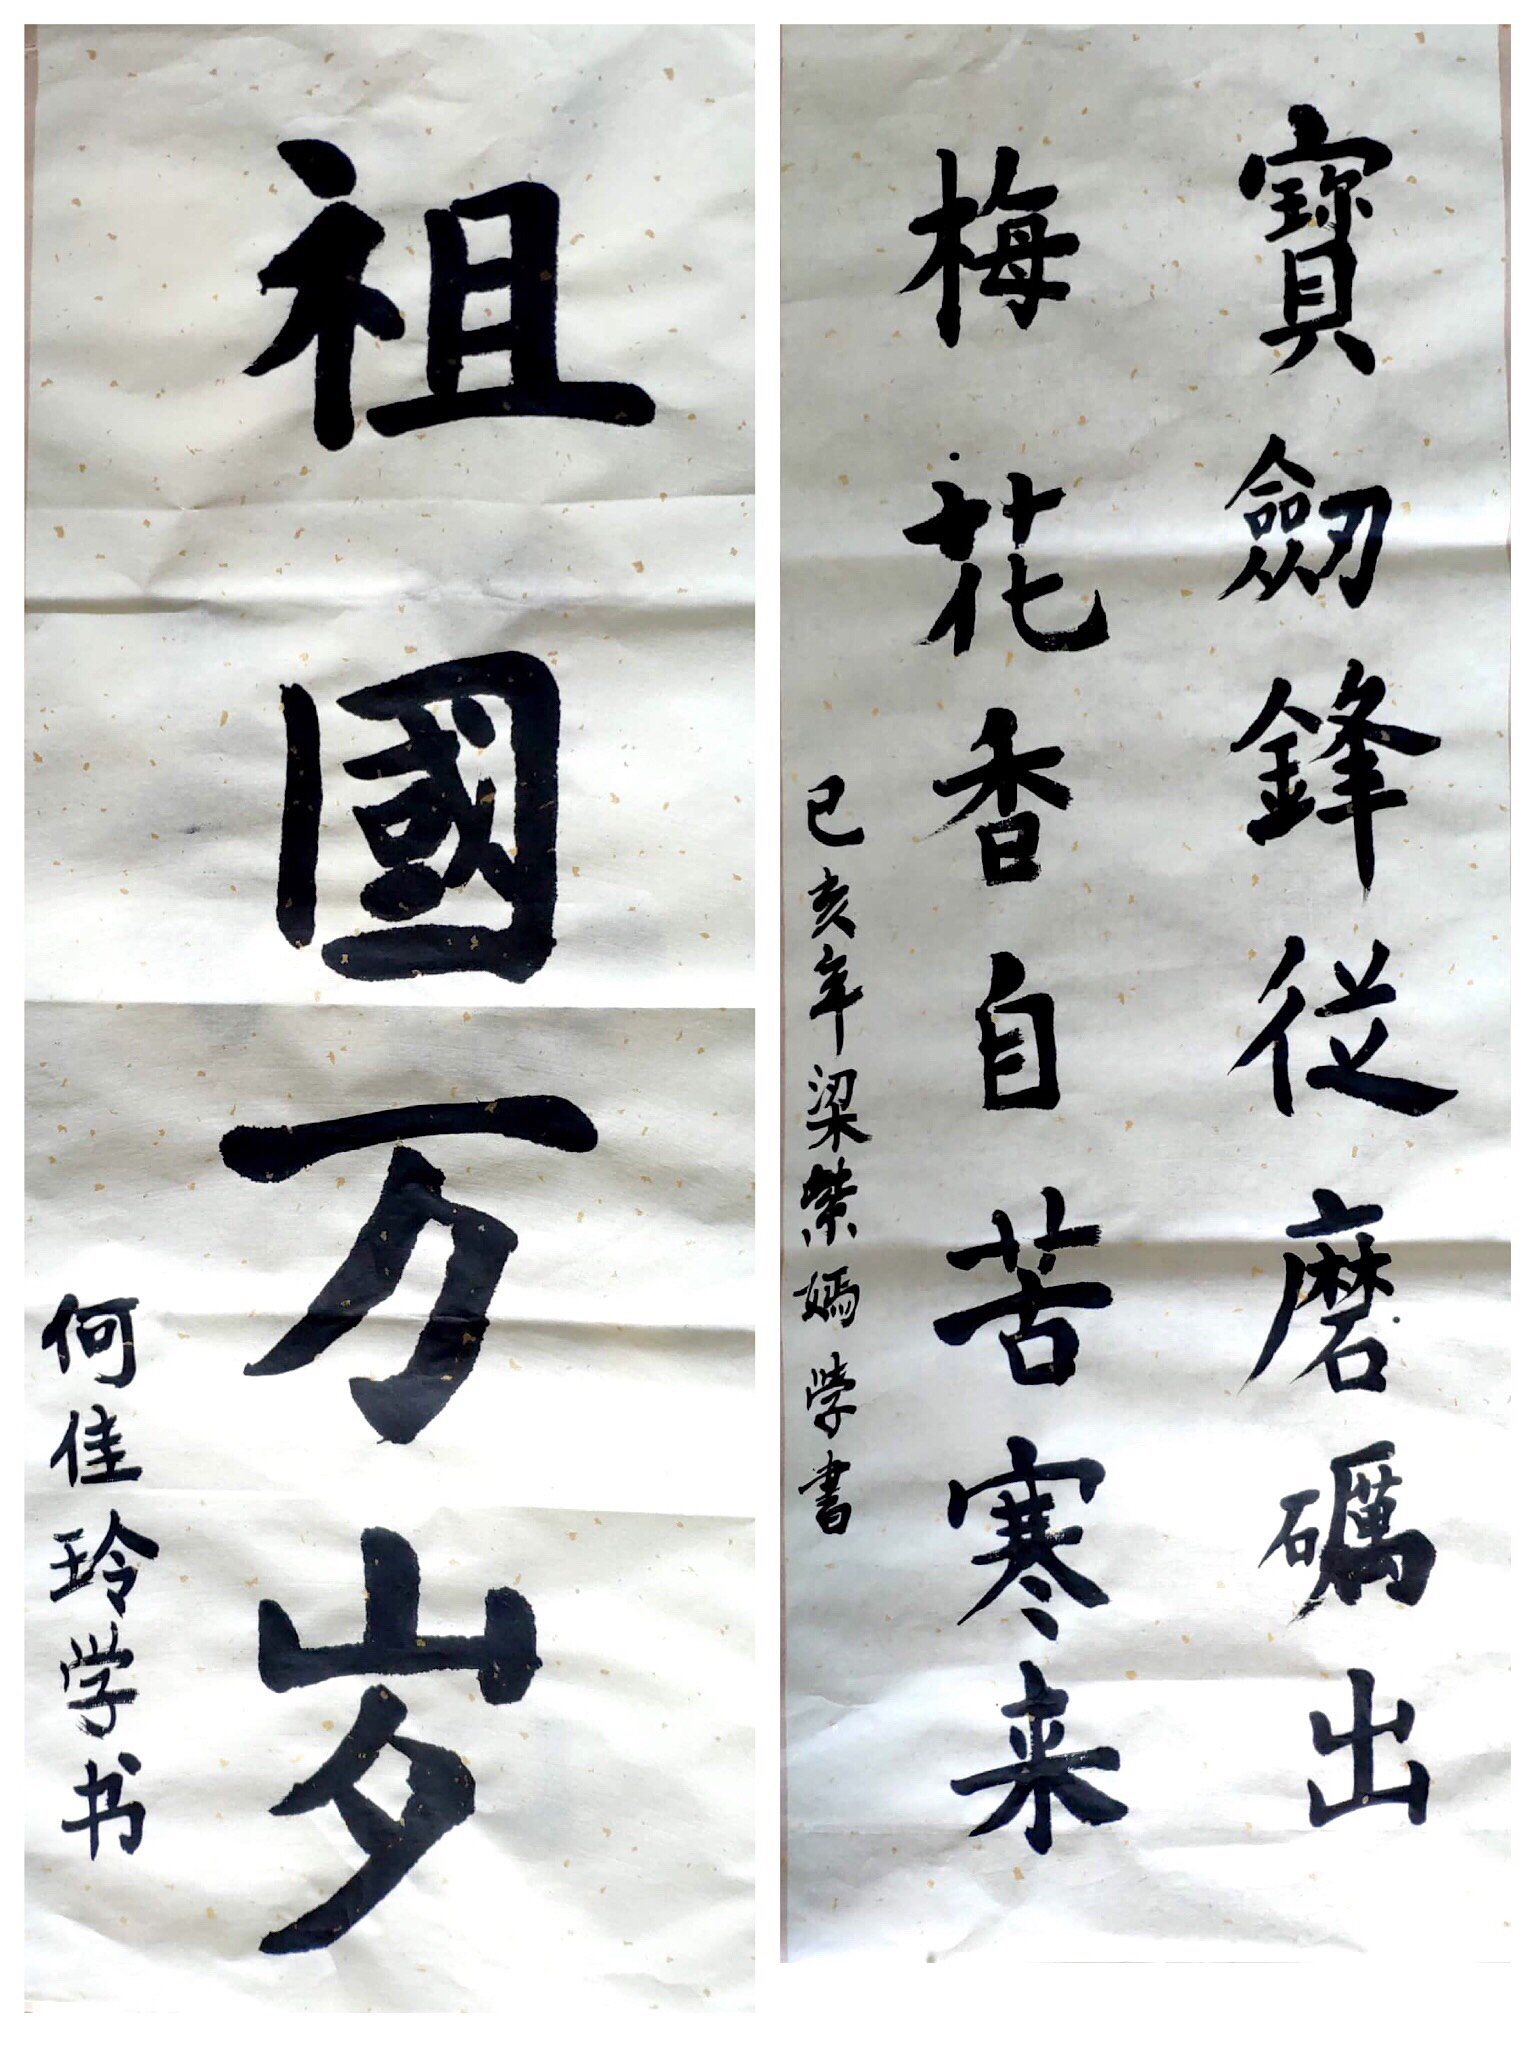 祖國万岁
何佳玲学书
寶劒鋒従磨礪出
梅花香自苦寒来
已亥年梁紫嫣學書